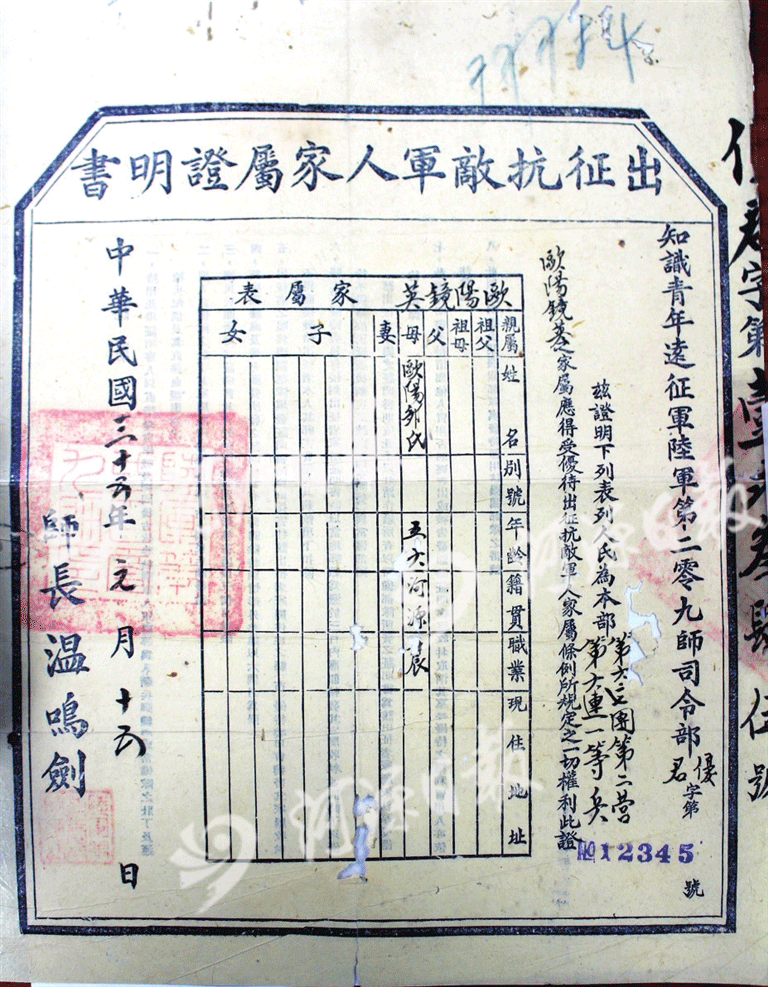 出征抗敵軍人家屬證明書
知識青年遠征軍陸軍第二零九師司令部優字第
№12345
號
茲證明下列表列人民為本部第六二團第二營
第六連一等兵
歐陽鏡英之家屬應得受優待出征抗敵軍人家屬條例所規定之一切權利此證
歐陽鏡英家屬表
親屬 姓名 別號 年齡 籍貫 職業 現住地址
祖父
祖母
父
母 歐陽鄒氏 五六 河源 農
妻
子
女
中華民國三十五年元月十五日
師長溫鳴劍
河源日報
河源日報